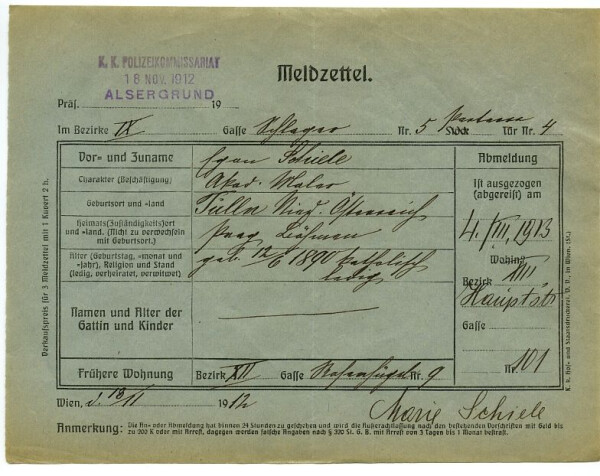 K. K. POLIZEIKOMMISSARIAT
18 NOV. 1912
ALSERGRUND
Meldzettel.
Präs. 19
Im Bezirke IX Gasse Schlager Nr. 5 Stock Parterre Tür Nr. 4
Vor- und Zuname Egon Schiele
Charakter (Beschäftigung) Akad. Maler
Geburtsort und -land Tulln Nied. Österreich
Heimats(Zuständigkeits)ort und -land. (Nicht zu verwechseln mit Geburtsort.) Prag Böhmen
Alter (Geburtstag, -monat und -jahr), Religion und Stand (ledig, verheiratet, verwitwet) geb. 12/6 1890 katholisch ledig
Namen und Alter der Gattin und Kinder
Frühere Wohnung Bezirk XII Gasse Rosenhügel Nr. 9
Abmeldung
Ist ausgezogen (abgereist) am
4./III, 1913
Wohin?
Bezirk XIII
Hauptstr
Gasse
Nr. 101
Wien, d. 18/11 1912
Marie Schiele
Anmerkung: Die An- oder Abmeldung hat binnen 24 Stunden zu geschehen und wird die Außerachtlassung nach den bestehenden Vorschriften mit Geld bis zu 200 K oder mit Arrest, dagegen werden falsche Angaben nach § 320 St. G. B. mit Arrest von 3 Tagen bis 1 Monat bestraft.
Verkaufspreis für 3 Meldzettel mit 1 Kuvert 2 h.
K. k. Hof- und Staatsdruckerei. D. V., in Wien. (St.)